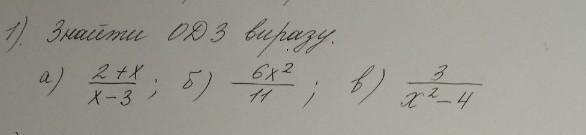 1). Знайти ОДЗ виразу.
а) (2+x)/(x-3); б) 6x²/11; в) 3/(x²-4)